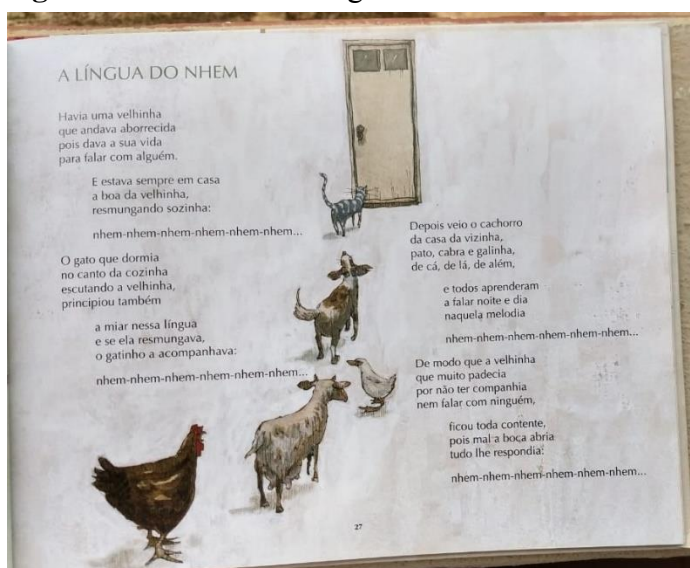 A LÍNGUA DO NHEM
Havia uma velhinha
que andava aborrecida
pois dava a sua vida
para falar com alguém.
E estava sempre em casa
a boa da velhinha,
resmungando sozinha:
nhem-nhem-nhem-nhem-nhem-nhem...
O gato que dormia
no canto da cozinha
escutando a velhinha,
principiou também
a miar nessa língua
e se ela resmungava,
o gatinho a acompanhava:
nhem-nhem-nhem-nhem-nhem-nhem...
Depois veio o cachorro
da casa da vizinha,
pato, cabra e galinha,
de cá, de lá, de além,
e todos aprenderam
a falar noite e dia
naquela melodia
nhem-nhem-nhem-nhem-nhem-nhem...
De modo que a velhinha
que muito padecia
por não ter companhia
nem falar com ninguém,
ficou toda contente,
pois mal a boca abria
tudo lhe respondia:
nhem-nhem-nhem-nhem-nhem-nhem...
27